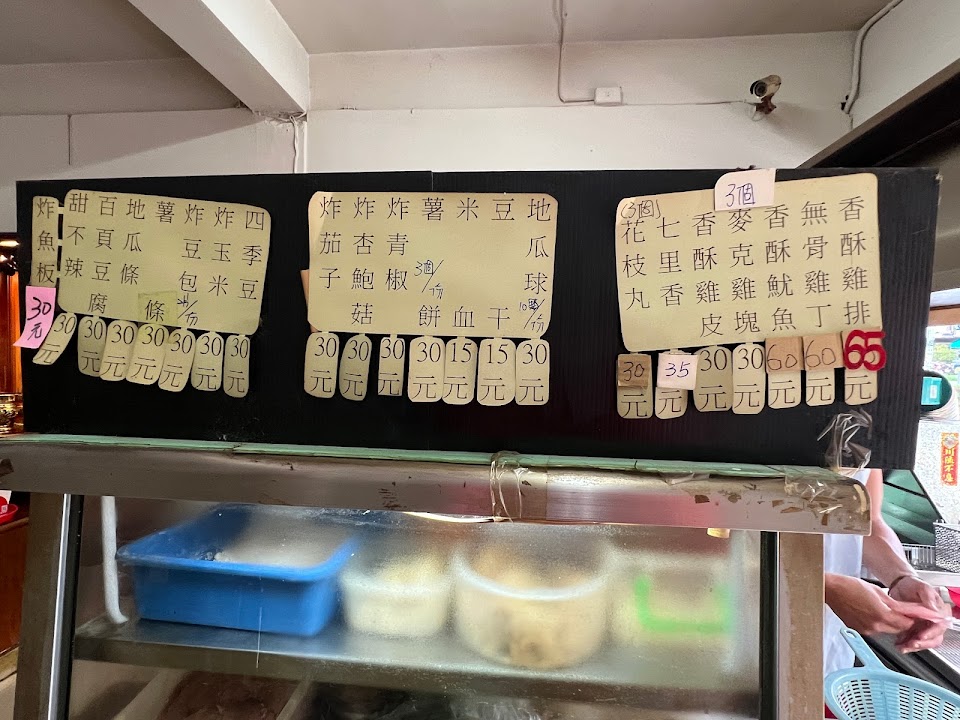 香酥雞排
65元
無骨雞丁
60元
香酥魷魚
60元
3個
麥克雞塊
30元
香酥雞皮
30元
七里香
35元
(3個)
花枝丸
30元
地瓜球
10顆/份
30元
豆干
15元
米血
15元
薯餅
3個/份
30元
炸青椒
30元
炸杏鮑菇
30元
炸茄子
30元
四季豆
30元
炸玉米
30元
炸豆包
30元
薯條
30元
地瓜條
30元
百頁豆腐
30元
甜不辣
30元
炸魚板
30元